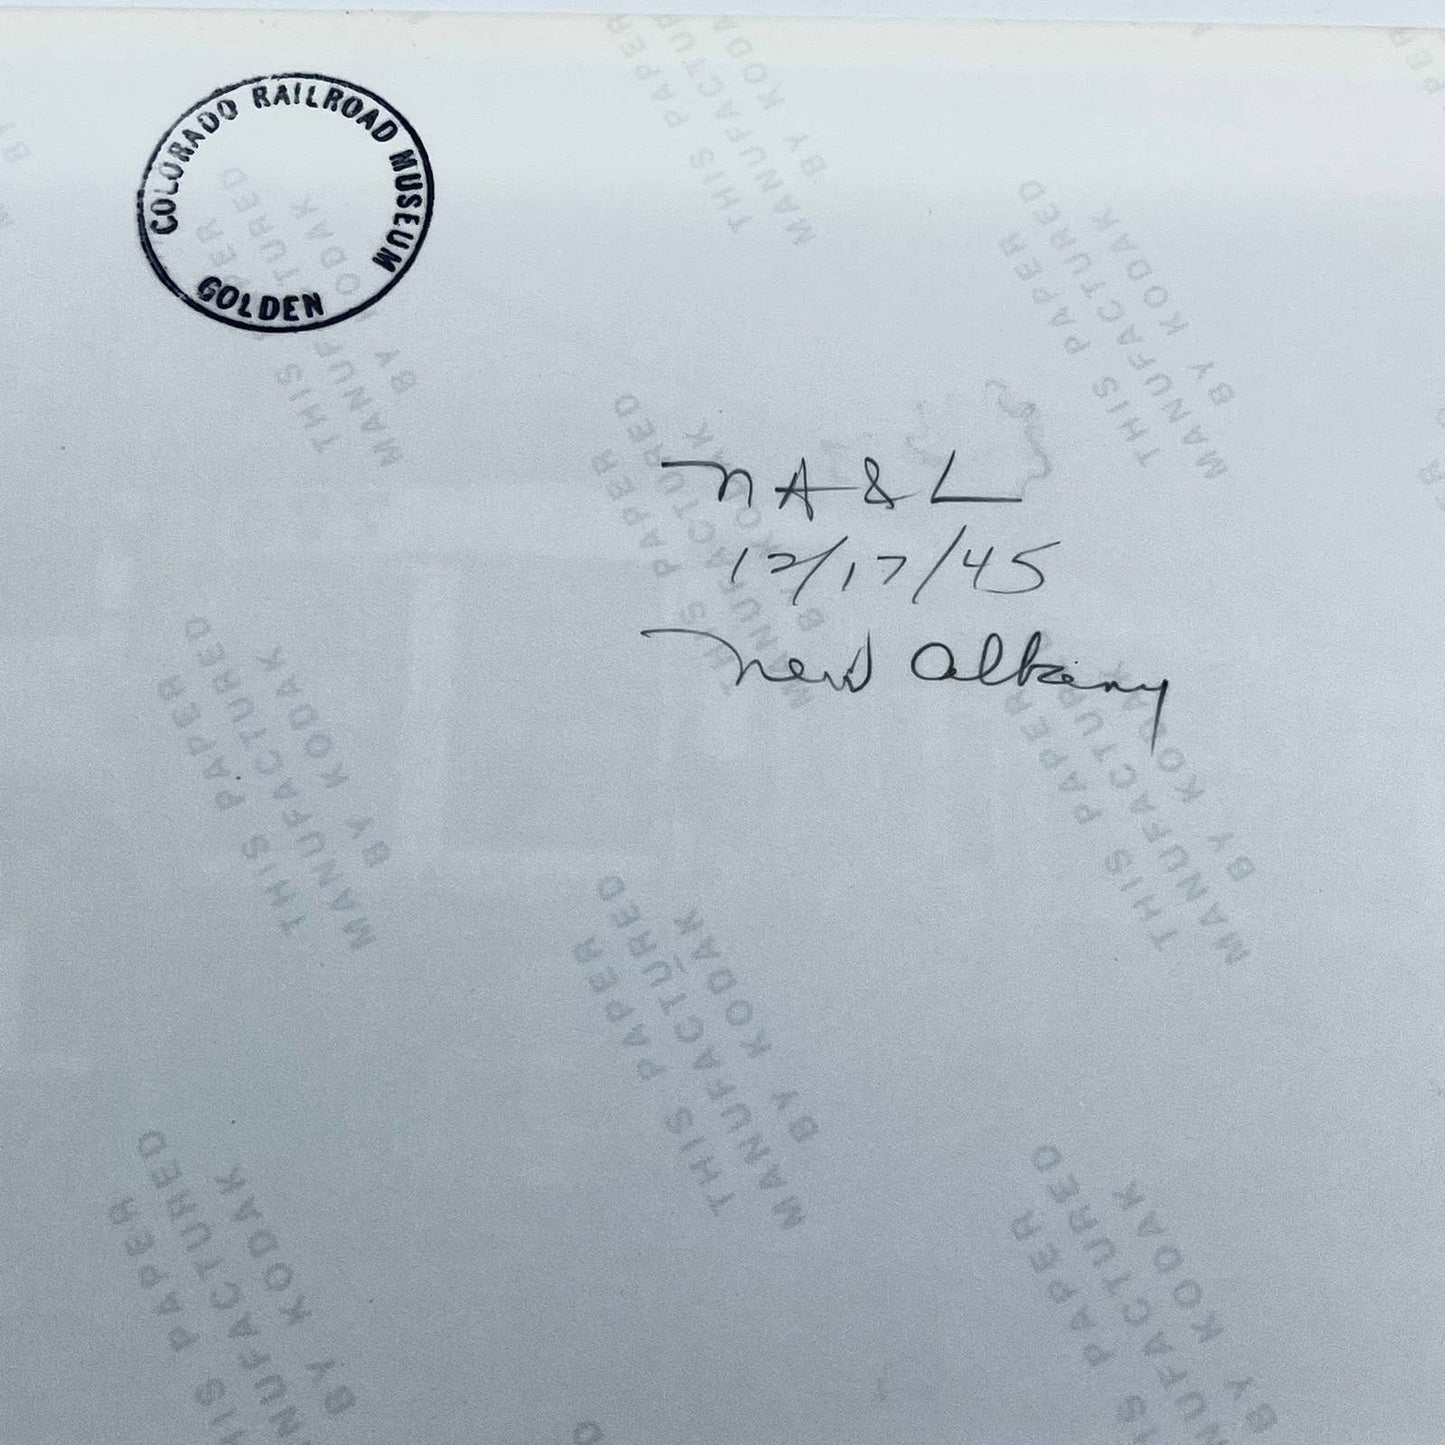 COLORADO RAILROAD MUSEUM
GOLDEN
NA & L
12/17/45
New Albany
THIS PAPER
MANUFACTURED
BY KODAK
THIS PAPER
MANUFACTURED
BY KODAK
THIS PAPER
MANUFACTURED
BY KODAK
THIS PAPER
MANUFACTURED
BY KODAK
THIS PAPER
MANUFACTURED
BY KODAK
THIS PAPER
MANUFACTURED
BY KODAK
THIS PAPER
MANUFACTURED
BY KODAK
THIS PAPER
MANUFACTURED
BY KODAK